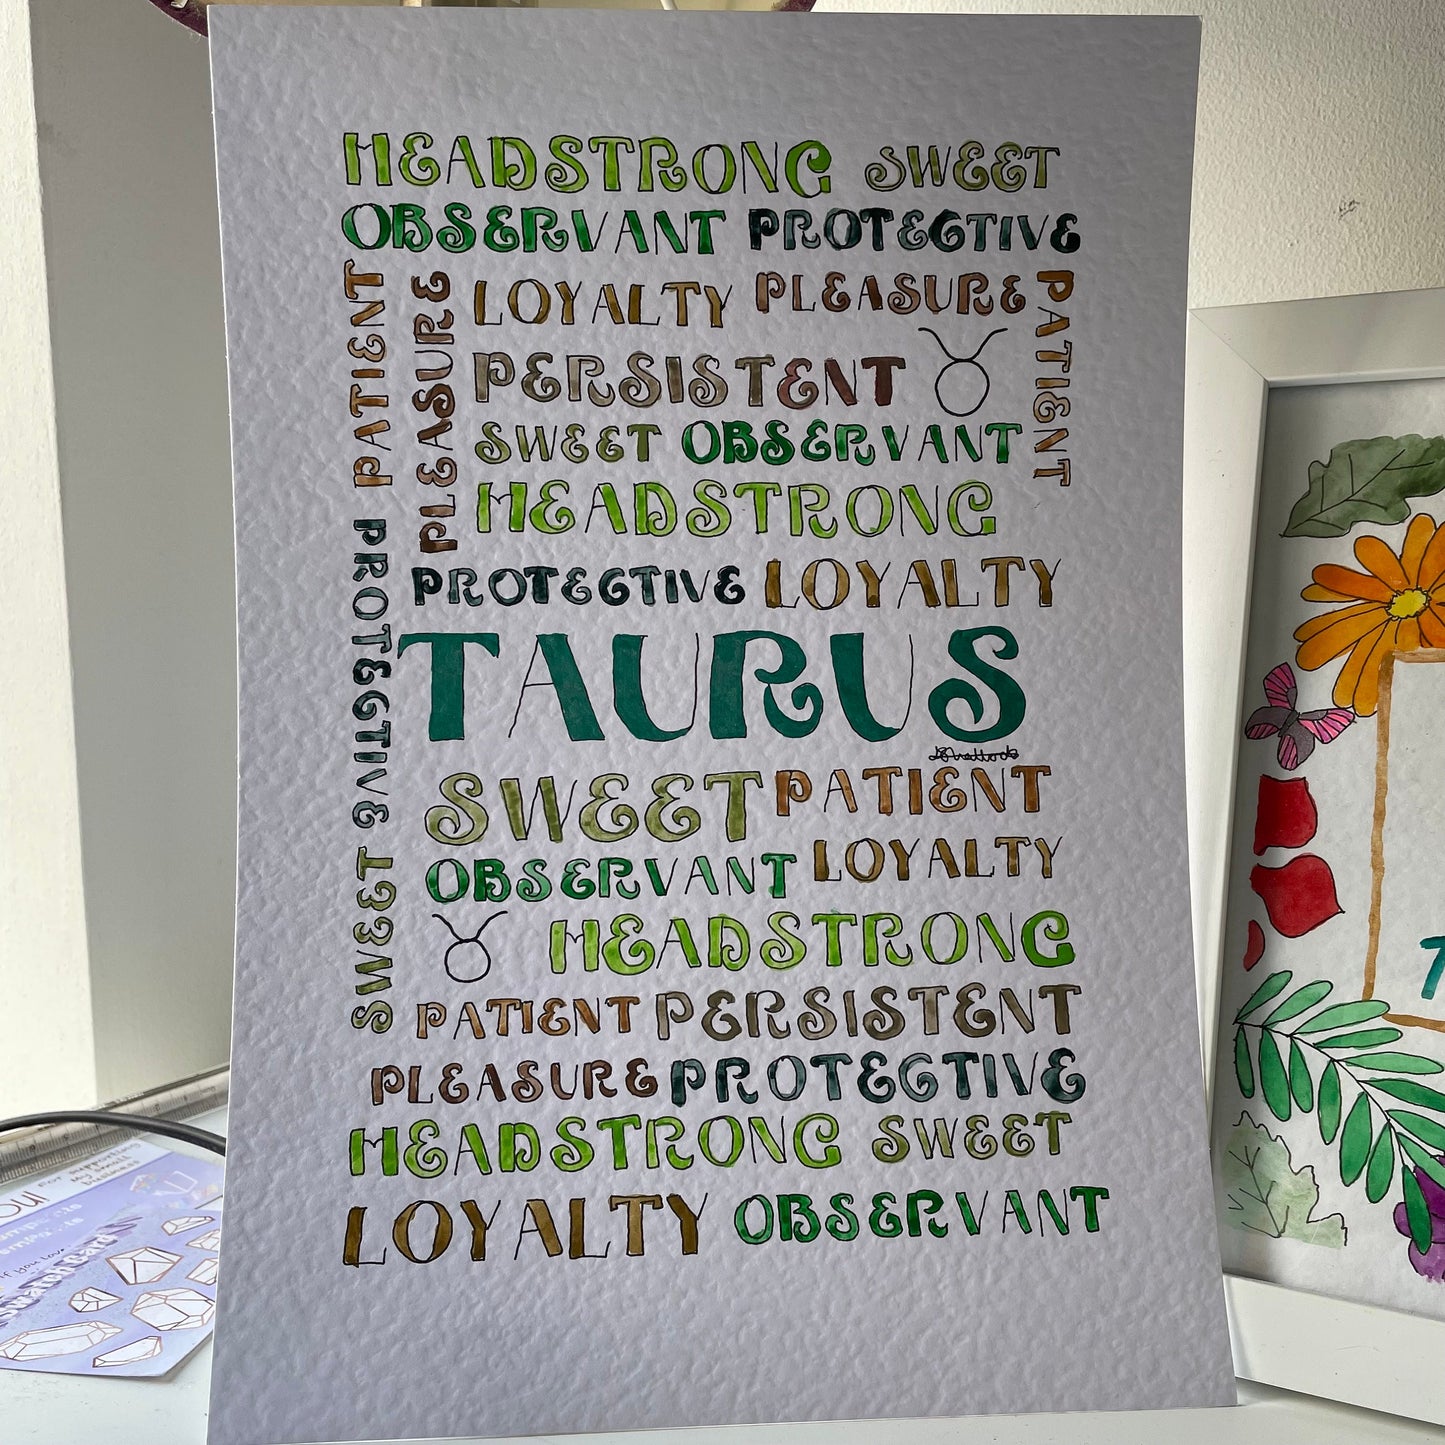 HEADSTRONG SWEET
OBSERVANT PROTECTIVE
PATIENT
PLEASURE
LOYALTY PLEASURE
PATIENT
PERSISTENT
SWEET OBSERVANT
HEADSTRONG
PROTECTIVE
PROTECTIVE LOYALTY
TAURUS
SWEET PATIENT
SWEET
OBSERVANT LOYALTY
HEADSTRONG
PATIENT PERSISTENT
PLEASURE PROTECTIVE
HEADSTRONG SWEET
LOYALTY OBSERVANT
for supporting
my small
business
if you love